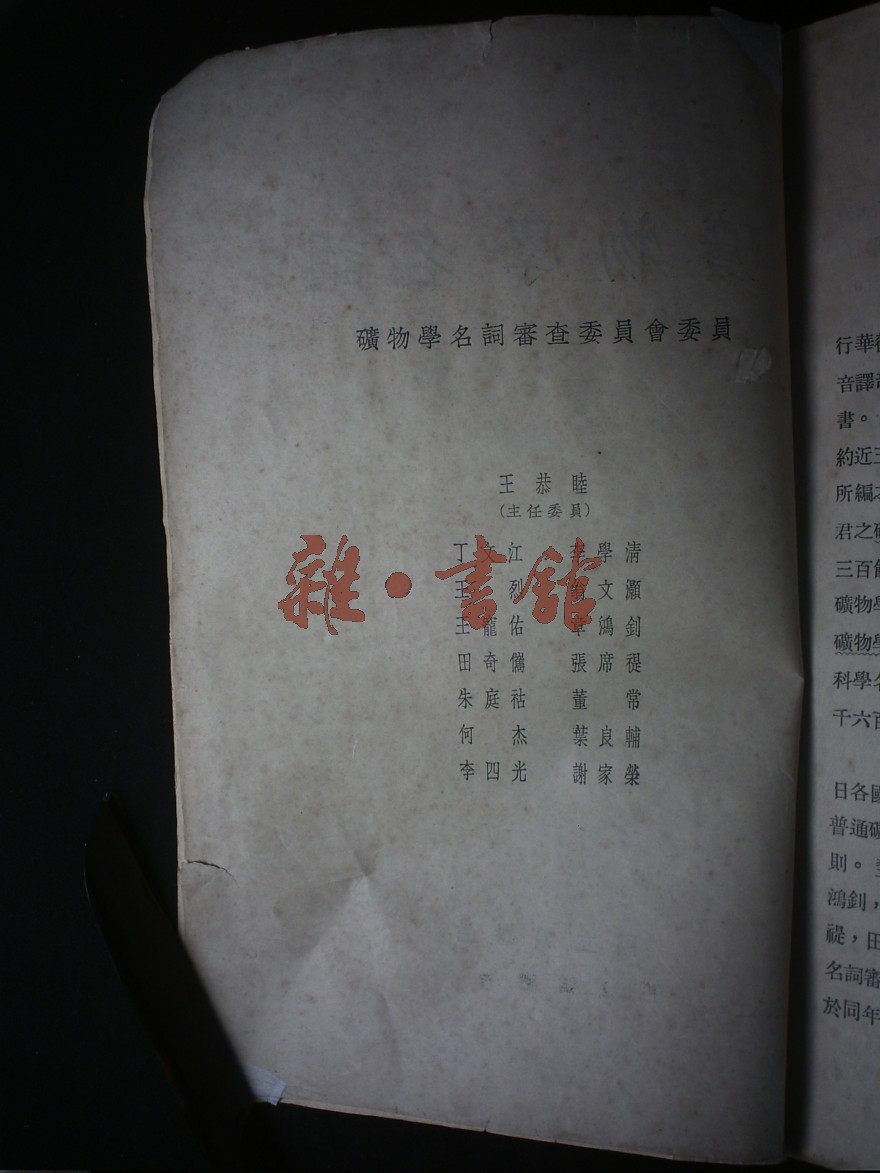 礦物學名詞審查委員會委員
王恭睦
(主任委員)
丁文江 李學清
王烈 翁文灝
王寵佑 章鴻釗
田奇㻪 張席禔
朱庭祜 董常
何杰 葉良輔
李四光 謝家榮
雜·書館
行華
音譯
書。
約近三
所編
君之
三百
礦物學
礦物學
科學名
千六百
日各國
普通礦
則。
鴻釗，
禔，田
名詞審
於同年